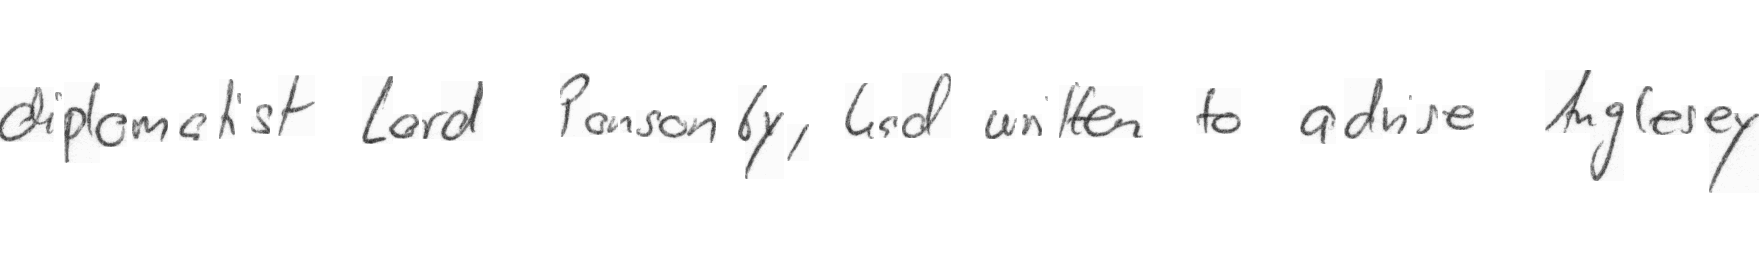 diplomatist Lord Ponsonby, had written to advise Anglesey